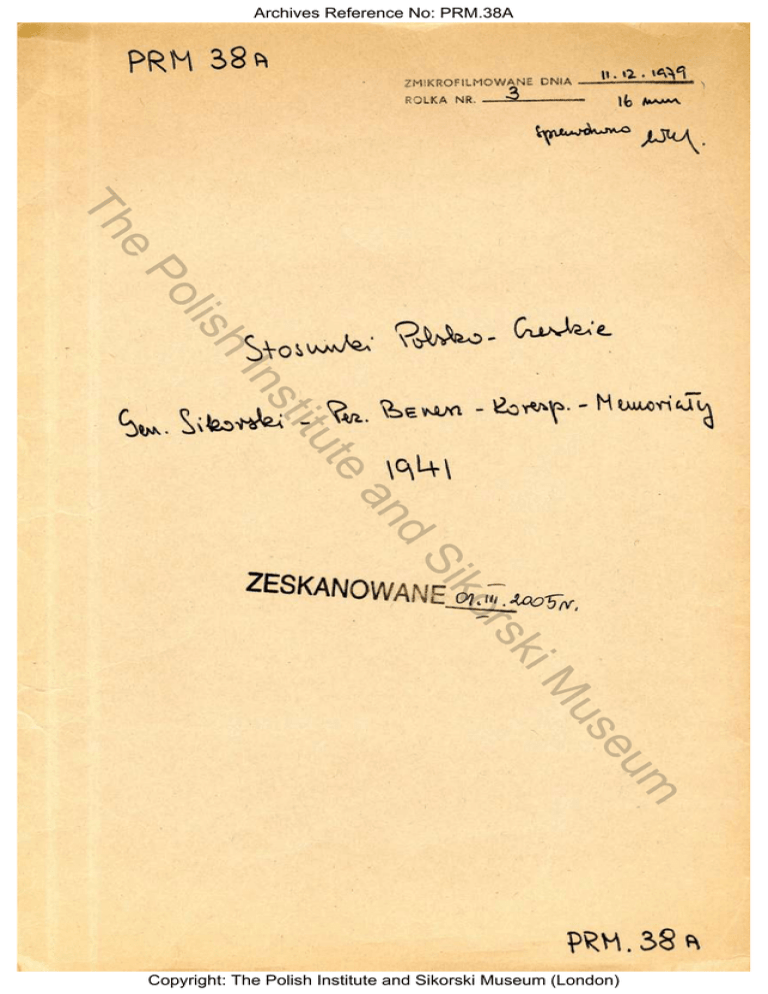 Archives Reference No: PRM.38A
PRM 38A
ZMIKROFILMOWANE DNIA 11.12.1979
ROLKA NR. 3 16 mm
sprawdzono
The Polish Institute and Sikorski Museum
Stosunki Polsko-Czeskie
Gen. Sikorski - Prez. BENESZ - Koresp. - Memoriały
1941
ZESKANOWANE 01.III.2005r.
PRM. 38A
Copyright: The Polish Institute and Sikorski Museum (London)